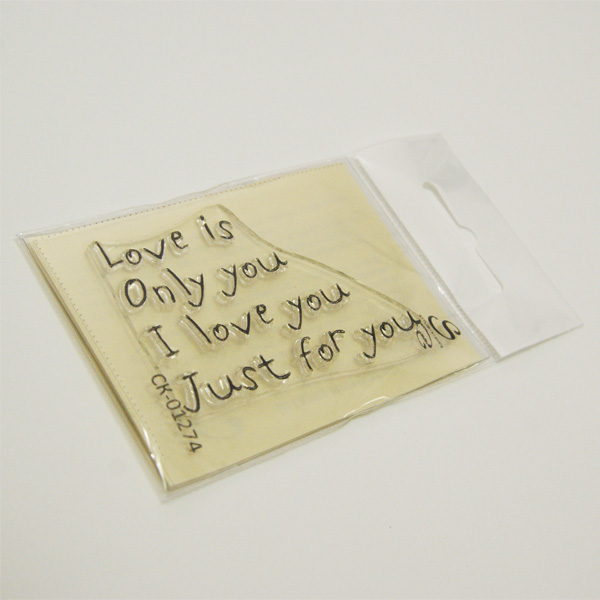 Love is
Only you
I love you
Just for you
CK-01274